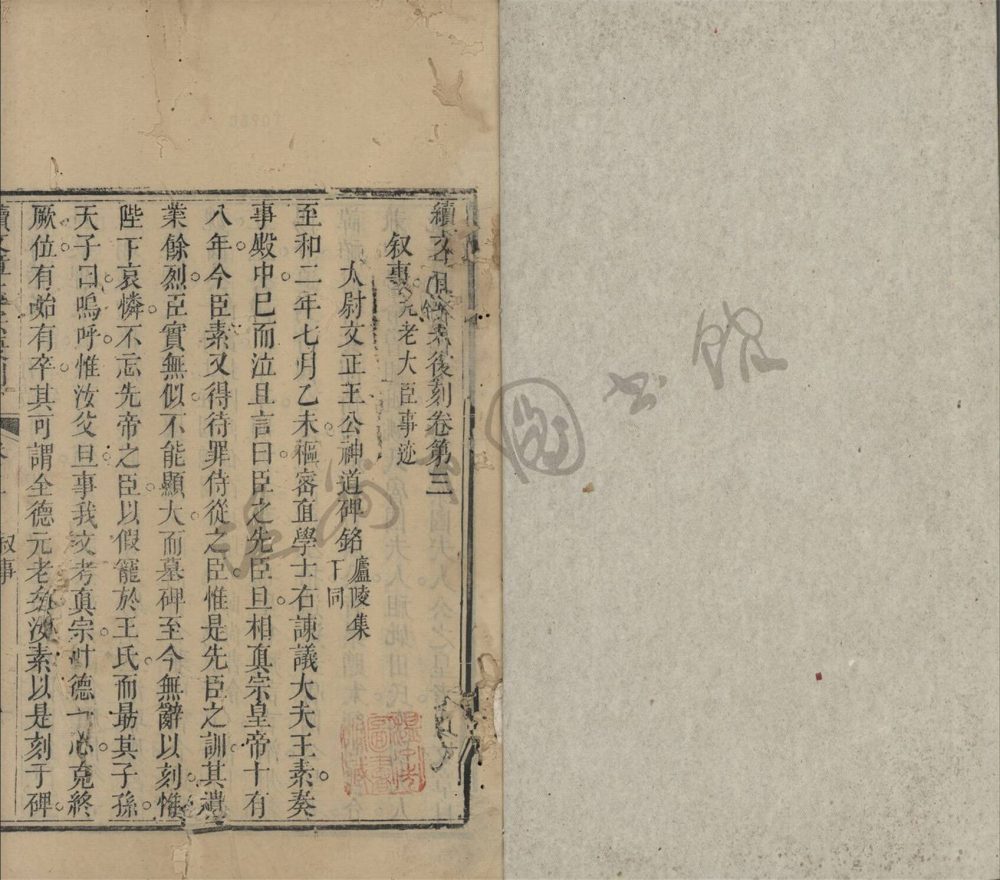 續文章正宗後刻卷第三
叙事元老大臣事迹
太尉文正王公神道碑銘廬陵集下同
至和二年七月乙未樞密直學士右諫議大夫王素奏
事殿中已而泣且言曰臣之先臣旦相真宗皇帝十有
八年今臣素又得待罪侍從之臣惟是先臣之訓其遺
業餘烈臣實無似不能顯大而墓碑至今無辭以刻惟
陛下哀憐不忘先帝之臣以假寵於王氏而勗其子孫
天子曰嗚呼惟汝父旦事我文考真宗叶德一心克終
厥位有始有卒其可謂全德元老矣汝素以是刻于碑
叙事
圖書館